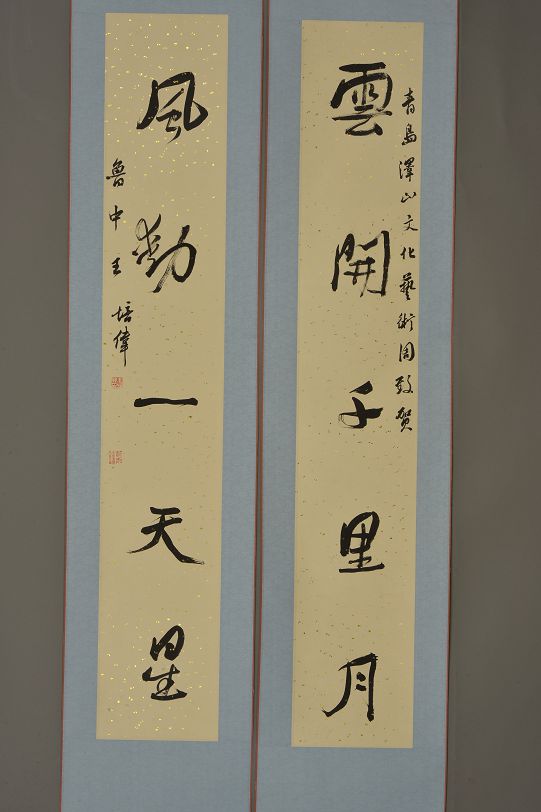 青島澤山文化藝術周致贺
雲開千里月
風動一天星
魯中王培偉